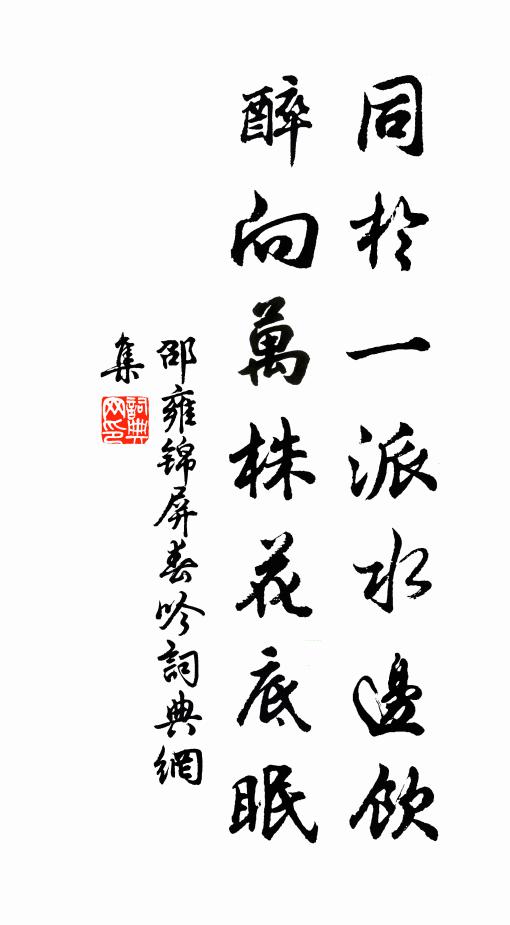 同於一派水邊飲
醉向萬株花底眠
邵雍锦屏春吟詞典網
集
詞典
网印